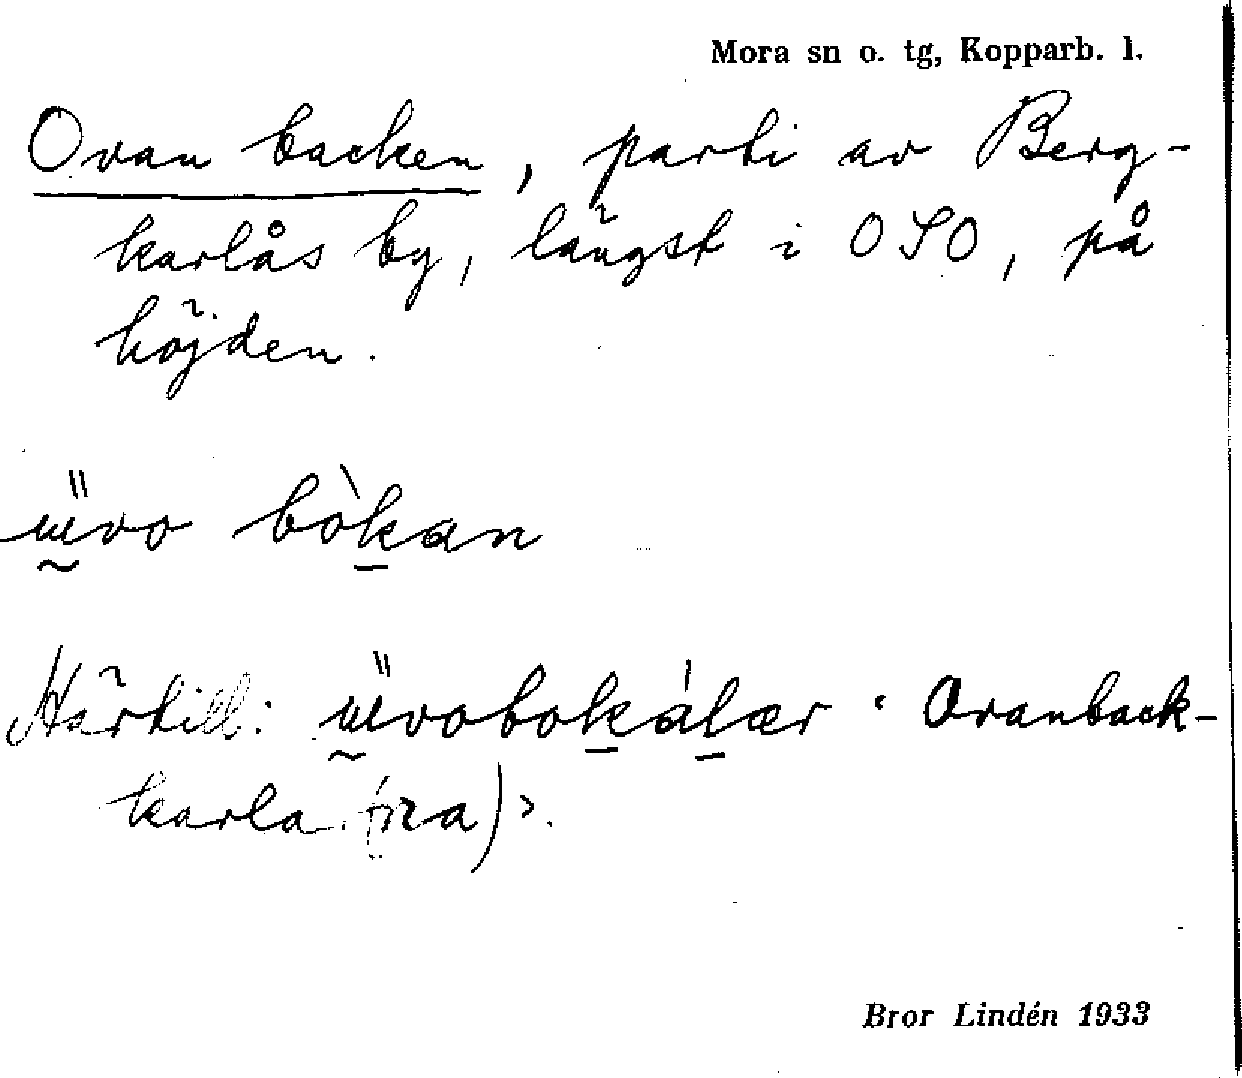 Mora sn o. tg, Kopparb. l.
Ovan backen, parti av Berg-
karlås by, längst i OSO, på
höjden.
ɯ̈vo bòkan
Härtill: ɯ̈vobokálær ‹ Ovanback-
karla(rna) ›.
Bror Lindén 1933